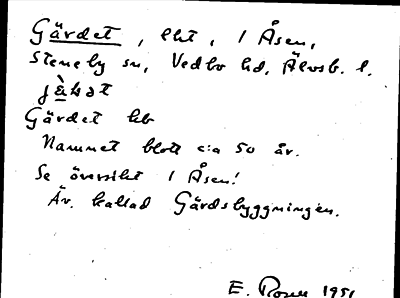 Gärdet, lht, i Åsen,
Steneby sn, Vedbo hd, Älvsb. l.
Gärdet lb
Namnet blott c:a 50 år.
Se översikt i Åsen!
Äv. kallad Gärdsbyggningen.
E. Rosell 1951